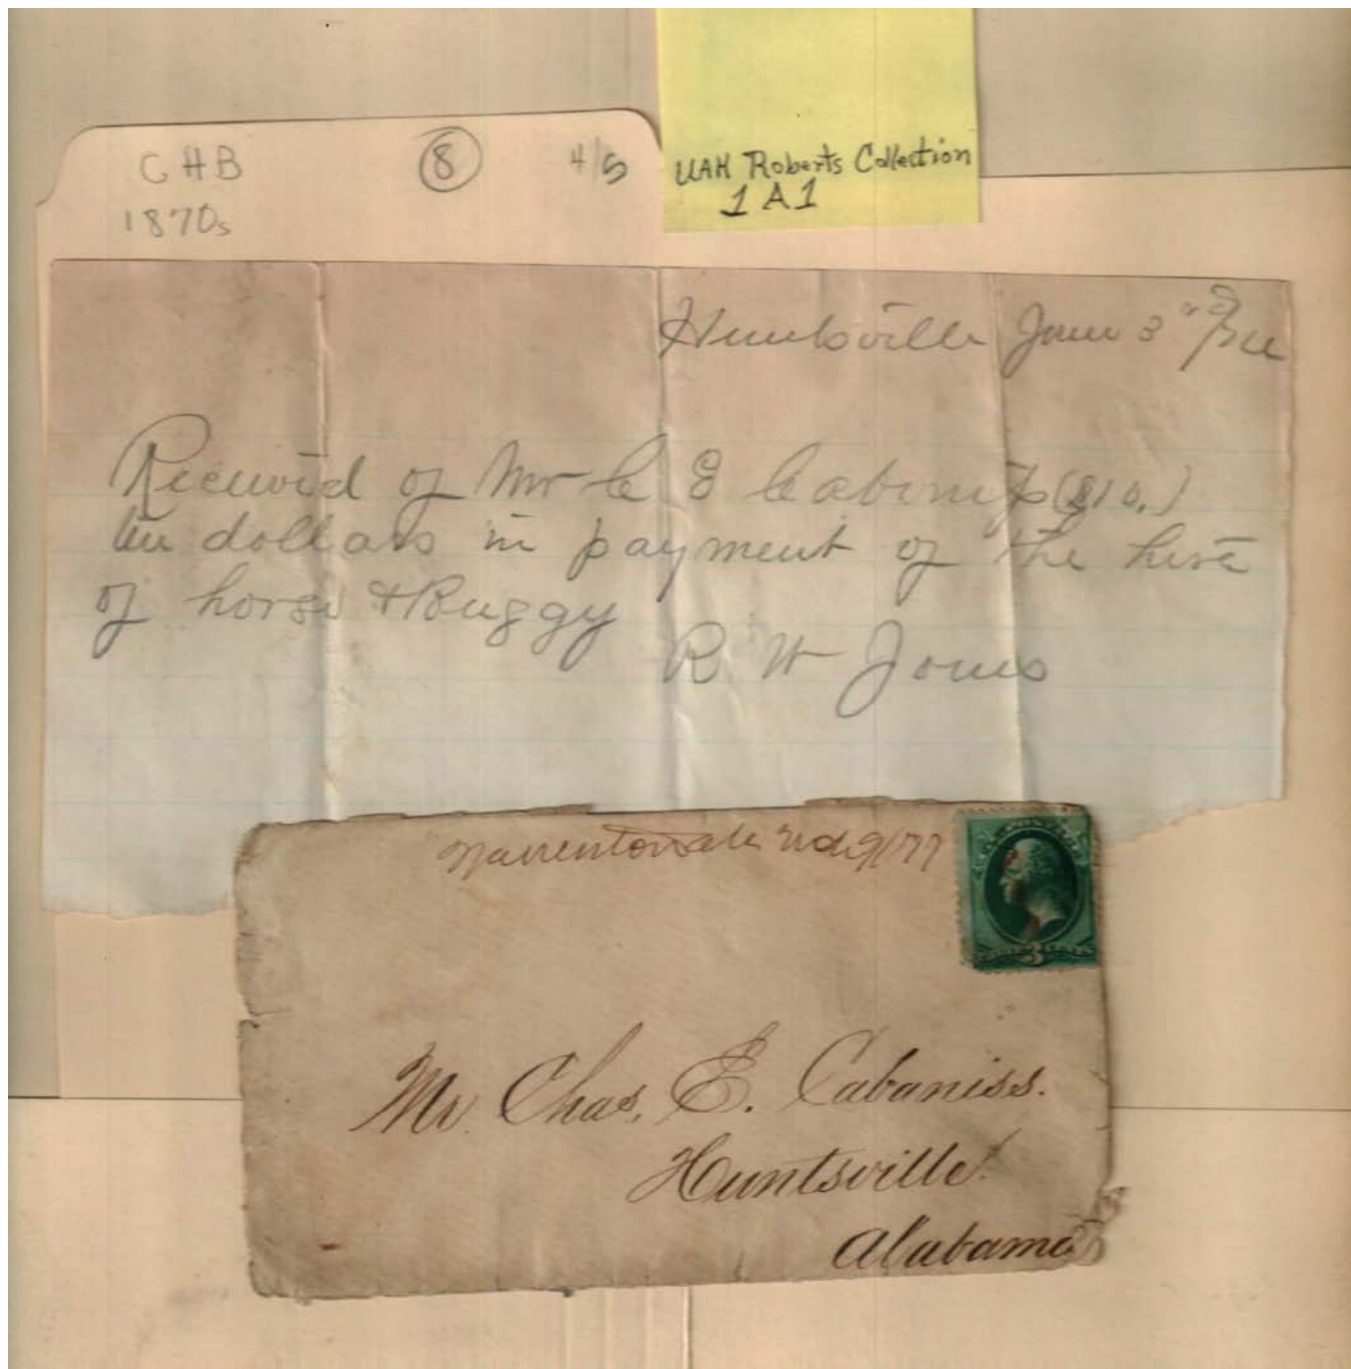 CHB 8 4/5
1870s
UAH Roberts Collection
1A1
Huntsville June 3rd
Received of Mr C E Cabiniss ($10.)
ten dollars in payment of the hire
of horse & Buggy
R W Jones
Warrenton Ala 9/77
3
Mr. Chas. E. Cabaniss.
Huntsville.
Alabama